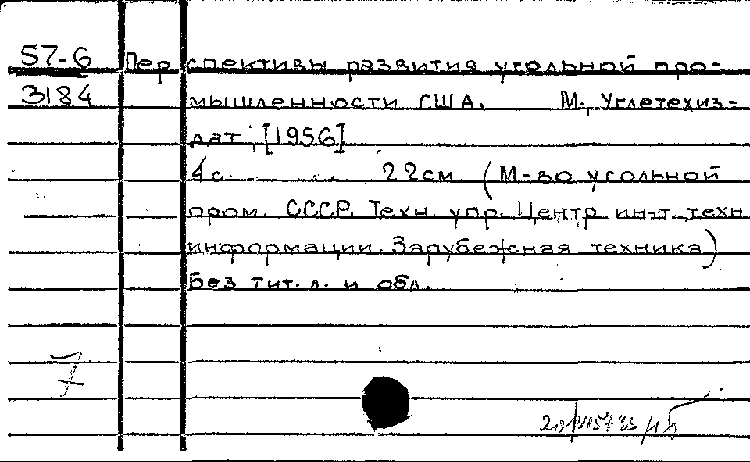 57-6 Перспективы развития угольной про-
3184 мышленности США. М., Углетехиз-
дат, [1956]
4 с. 22 см (М-во угольной
пром. СССР. Техн. упр. Центр. ин-т техн.
информации. Зарубежная техника)
Без тит. л. и обл.
7